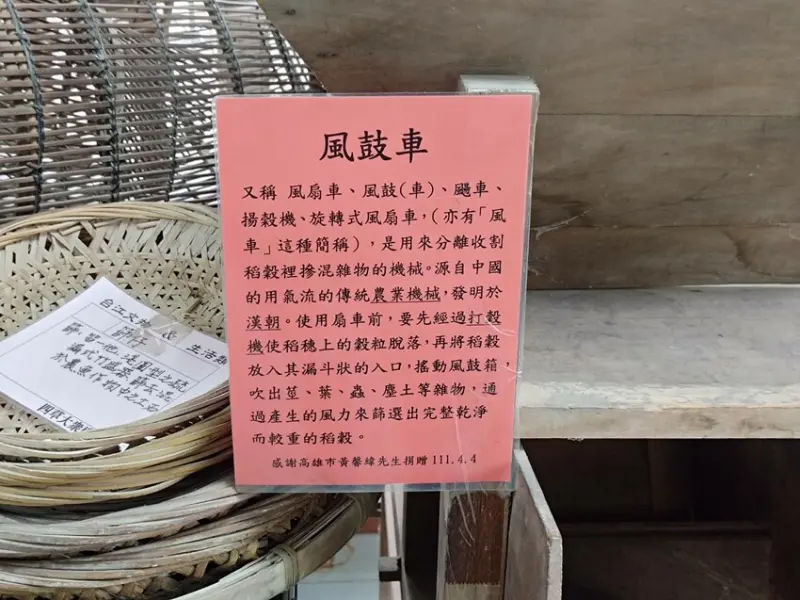 風鼓車
又稱 風扇車、風鼓(車)、颺車、
揚穀機、旋轉式風扇車,(亦有「風
車」這種簡稱),是用來分離收割
稻穀裡摻混雜物的機械。源自中國
的用氣流的傳統農業機械,發明於
漢朝。使用扇車前,要先經過打穀
機使稻穗上的穀粒脫落,再將稻穀
放入其漏斗狀的入口,搖動風鼓箱,
吹出莖、葉、蟲、塵土等雜物,通
過產生的風力來篩選出完整乾淨
而較重的稻穀。
感謝高雄市黃馨緯先生捐贈 111.4.4
台江文物
生活類
四草大眾